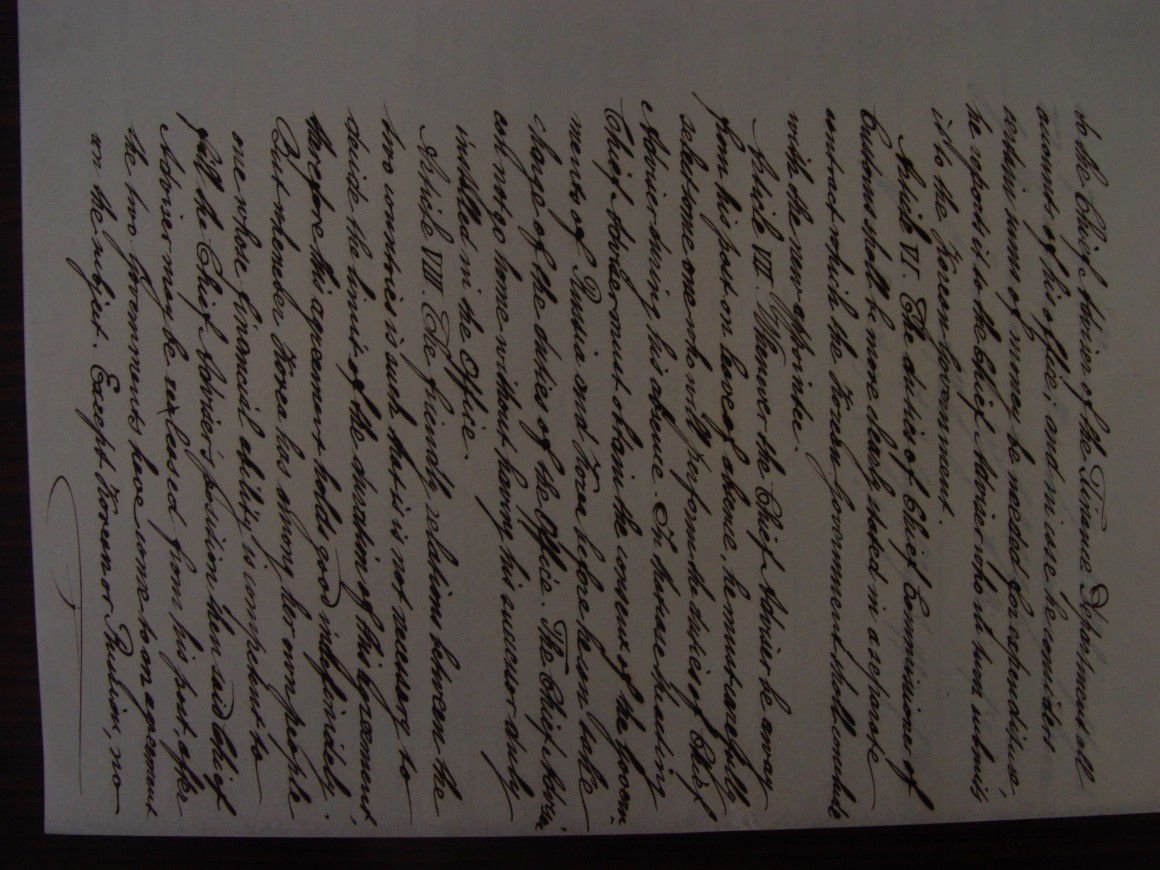 to the Chief Adviser of the Finance Department all
accounts of his office; and in case he considers
certain sums of money be needed for expenditure,
he reports it to the Chief Adviser who in turn submits
it to the Korean Government.
Article VI. The duties of Chief Commissioner of
Customs shall be more clearly stated in a separate
contract which the Korean Government shall conclude
with the new appointee.
Article VII. Whenever the Chief Adviser be away
from his post on leave of absence, he must carefully
select some one who will perform the duties of Chief
Adviser during his absence. In that case his acting
Chief Adviser must obtain the consensus of the Govern-
ments of Russia and Korea before he can take
charge of the duties of the Office. The Chief Adviser
can not go home without having his successor duly
installed in the Office.
Article VIII. The friendly relations between the
two countries is such that it is not necessary to
decide the limit of the duration of this agreement,
therefore this agreement holds good indefinidely.
But whenever Korea has among her own people
one whose financial ability is competent to
fill the Chief Adviser's position then said Chief
Adviser may be released from his post, after
the two Governments have come to an agreement
on the subject. Except Korean or Russian, no